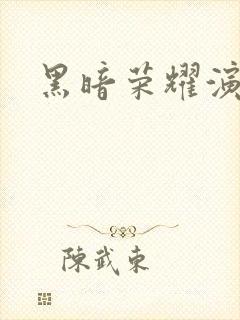 黑暗荣耀演
陳武東